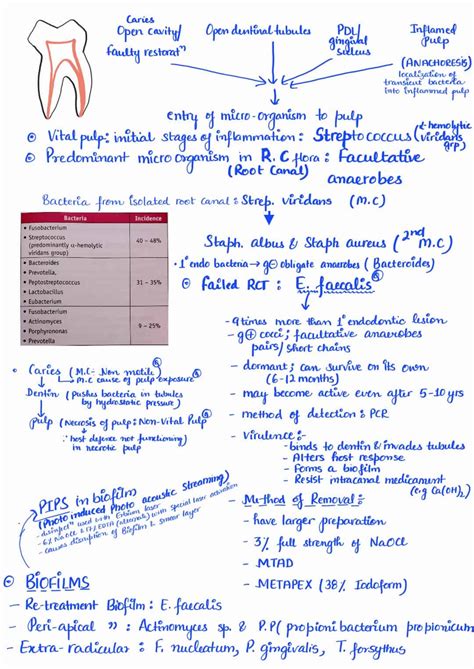 Caries
Open cavity/
faulty restorat"
Open dentinal tubules
PDL/
gingival
sulcus
Inflamed
Pulp
(ANACHORESIS)
localization of
transient bacteria
into inflammed pulp
entry of micro-organism to pulp
Vital pulp: initial stages of inflammation: Streptococcus (α-hemolytic
viridans
grp)
Predominant micro organism in R.C flora: Facultative
(Root Canal)
anaerobes
Bacteria from isolated root canal: Strep. viridans (M.C)
Staph. albus & Staph aureus (2nd
m.c)
1° endo bacteria → g⊖ obligate anaerobes (Bacteroides)
Bacteria Incidence
Fusobacterium
Streptococcus
(predominantly α-hemolytic
viridans group)
40 – 48%
Bacteroides
Prevotella,
Peptostreptococcus
Lactobacillus
Eubacterium
31 – 35%
Fusobacterium
Actinomyces
Porphyrononas
Prevotella
9 – 25%
Failed RCT : E. faecalis
- 9 times more than 1° endodontic lesion
- g⊕ cocci; facultative anaerobes
pairs/ short chains
- dormant; can survive on its own
(6-12 months)
- may become active even after 5-10 yrs
- method of detection: PCR
- Virulence:-
- binds to dentin & invades tubules
- Alters host response
- Forms a biofilm
- Resist intracanal medicament
(e.g Ca(OH)2)
Caries (M.C- Non motile)
M.C cause of pulp exposure
Dentin (Pushes bacteria in tubules
by hydrostatic pressure)
Pulp (Necrosis of pulp: Non-Vital Pulp
∵ host defence not functioning
in necrotic pulp
PIPS in biofilm
(Photo induced Photo acoustic streaming)
- used with Erbium laser
- 6% NaOCl & 17% EDTA (alternate) with special laser activation
- causes disruption of Biofilm & smear layer
Method of Removal:
- have larger preparation
- 3% full strength of NaOCl
- MTAD
- METAPEX (38% Iodoform)
BIOFILMS
- Re-treatment Biofilm : E. faecalis
- Peri-apical " : Actinomyces sp. & P.P (propioni bacterium propionicum
- Extra-radicular : F. nucleatum, P. gingivalis, T. forsythus